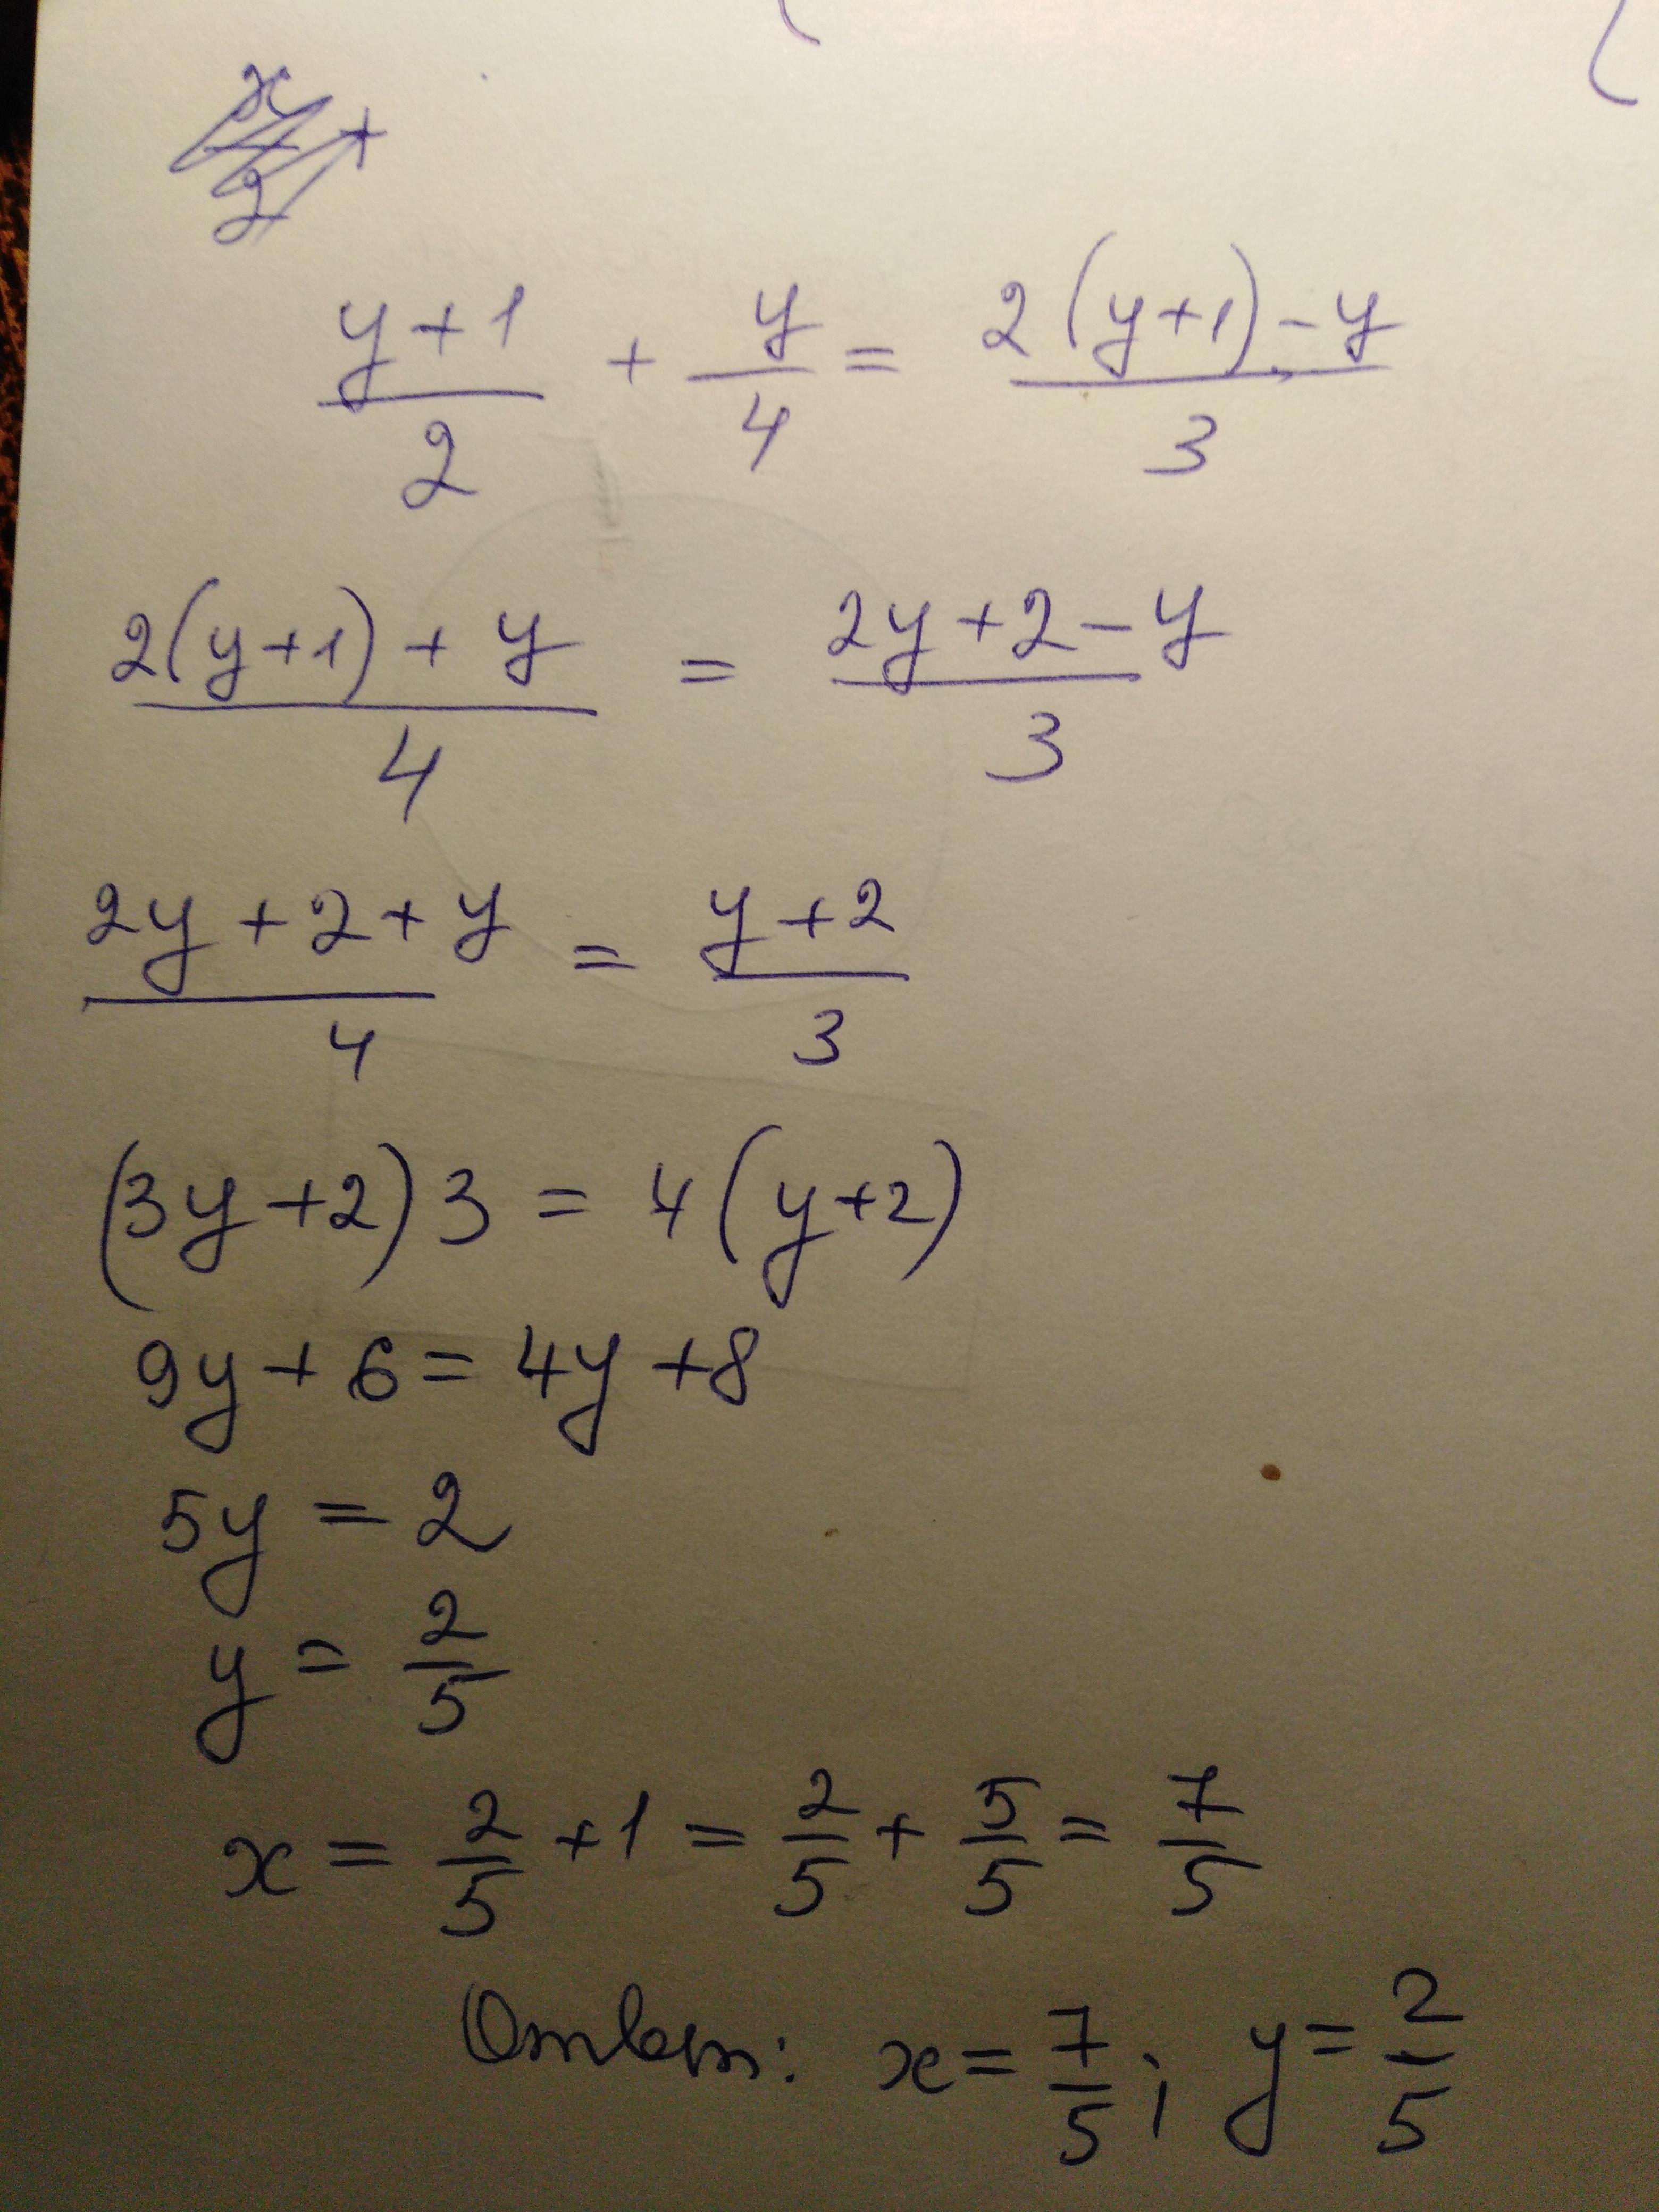 (y+1)/2 + y/4 = (2(y+1)-y)/3
(2(y+1)+y)/4 = (2y+2-y)/3
(2y+2+y)/4 = (y+2)/3
(3y+2)3 = 4(y+2)
9y+6=4y+8
5y = 2
y = 2/5
x = 2/5 + 1 = 2/5 + 5/5 = 7/5
Ответ: x = 7/5; y = 2/5